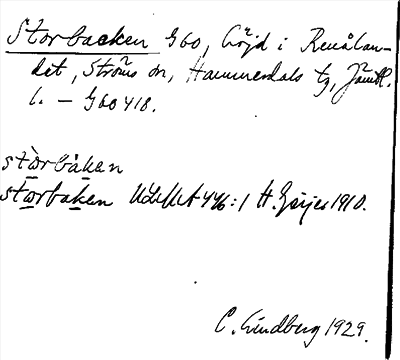 Storbacken G60, höjd i Renålan-
det, Ströms sn, Hammerdals tg, Jämtl.
l. – G60 418.
stòrbàken
storbaken ULMA 446:1 H. Geijer 1910.
C. Lindberg 1929.